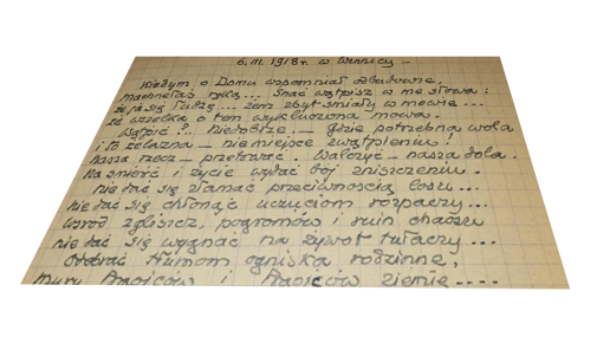 6. III. 1918 r. w Winnicy –
Kiedym o Domu wspomniał odbudowie,
machnęłaś ręką... Snać wątpisz w me słowa:
że ja się łudzę... żem zbyt śmiały w mowie...
że wszelka o tem wykluczona mowa.
Wątpić?.. Niedobrze. – gdzie potrzebna wola
i to żelazna – nie miejsce zwątpieniu!
Nasza rzecz – przetrwać. Walczyć – nasza dola.
Na śmierć i życie wydać bój zniszczeniu.
nie dać się złamać przeciwnością losu...
nie dać się chłonąć uczuciom rozpaczy...
wśród zgliszcz, pogromów i ruin chaosu
nie dać się wygnać na żywot tułaczy...
Odebrać tłumom ogniska rodzinne,
mury i ziemię....